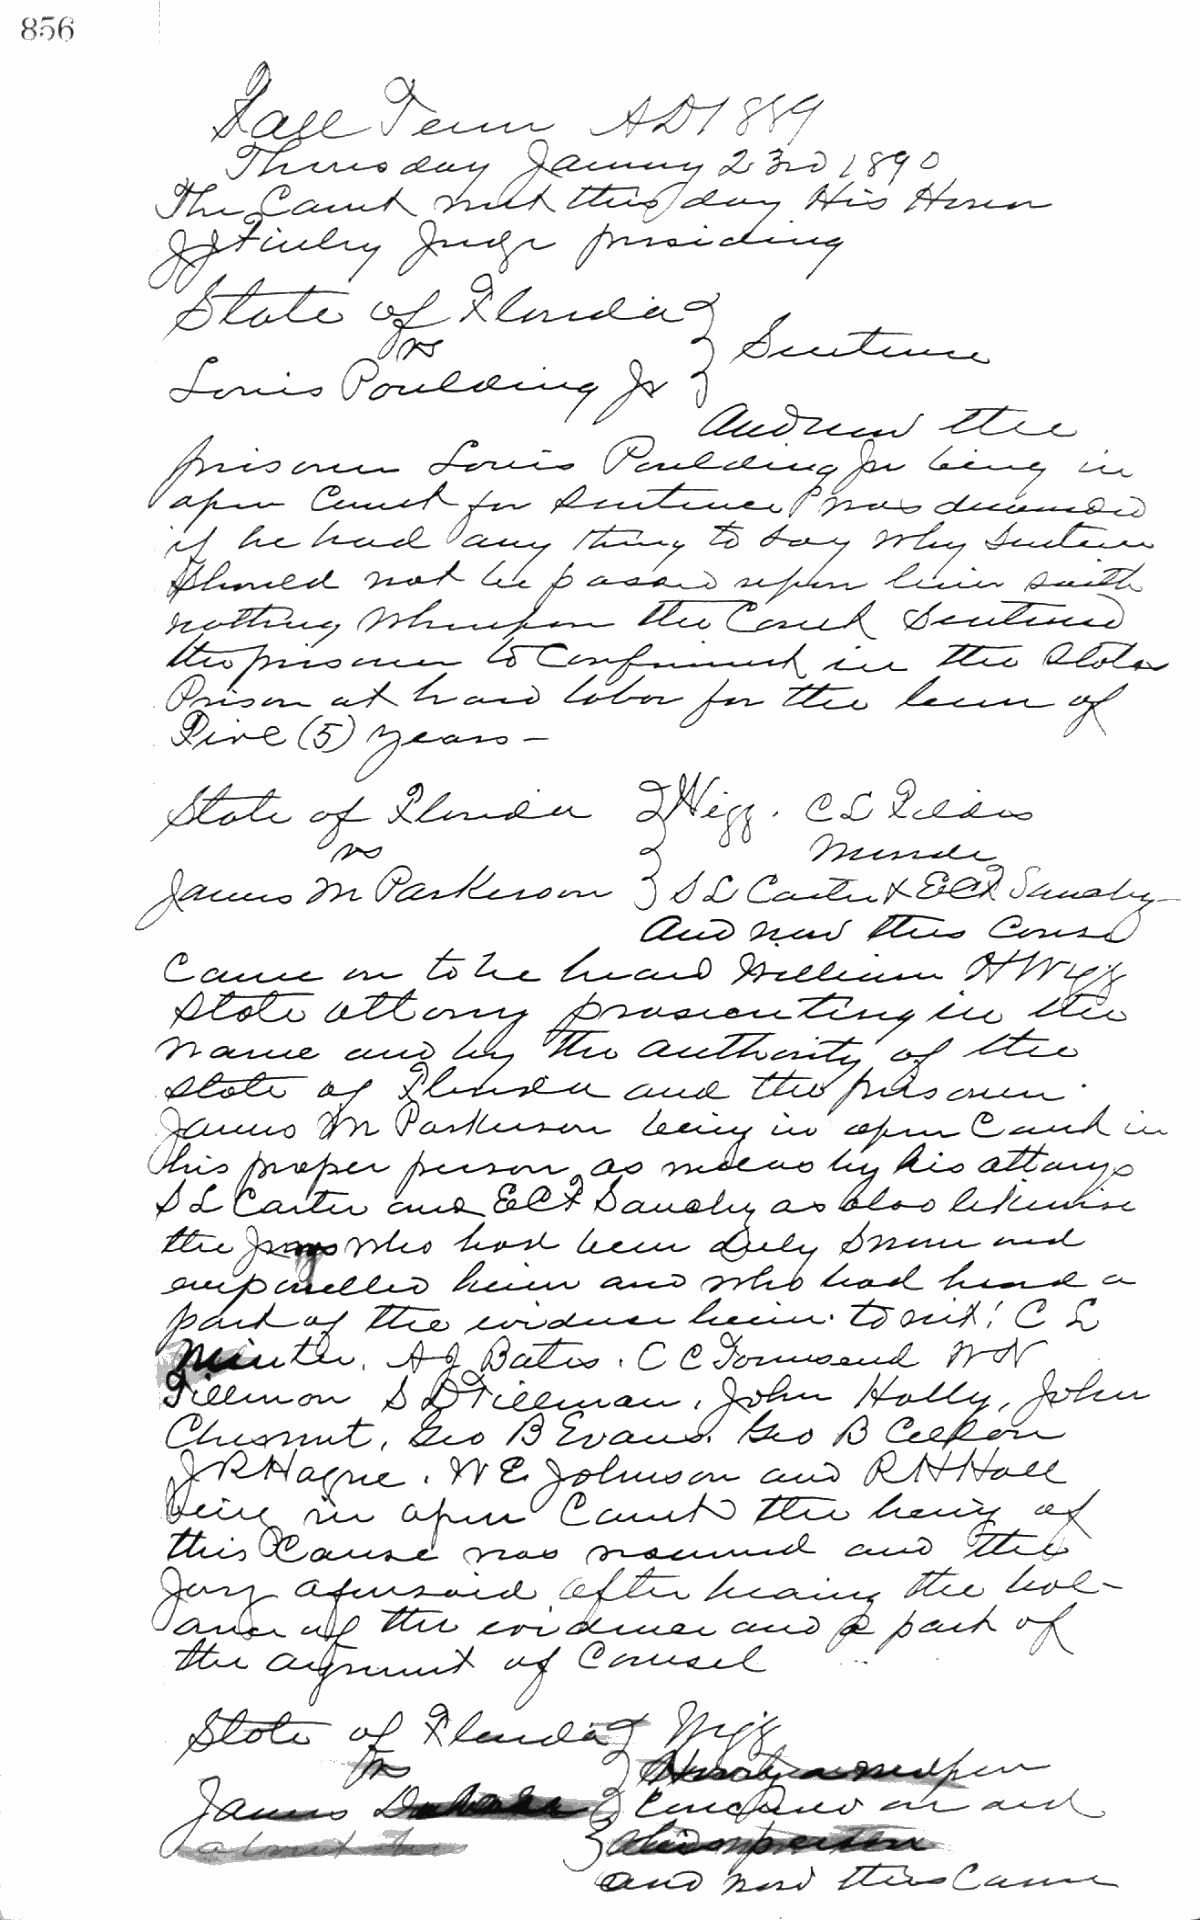 856
Fall Term AD 1889
Thursday January 23rd 1890
The Court met this day His Honor
J J Finley Judge presiding
State of Florida
vs Sentence
Louis Poulding Jr
And now the
prisoner Louis Poulding Jr being in
open Court for Sentence & was demanded
if he had any thing to say why Sentence
Should not be passed upon him saith
nothing Whereupon the Court Sentenced
the prisoner to Confinement in the States
Prison at hard labor for the term of
Five (5) years —
State of Florida Wigg. C L Fildes
vs
James M Parkerson S L Carter & E C F Sanchy
And now this Cause
Came on to be heard William H Wigg
State attorny prosecuting in the
name and by the authority of the
State of Florida and the prisoner
James M Parkerson being in open Court in
his proper person as well as by his attorys
S L Carter and E C F Sanchy as also likewise
the jurors who had been duly sworn and
empanelled herein and who had heard a
part of the evidence herein. to wit: C L
Minter. A J Bates. C C Townsend W N
Tillmon S D Tillman, John Holly, John
Chesnut, Geo B Evans. Geo B Cellon
J R Hague. W E Johnson and R H Hall
being in open Court the hearing of
this Cause was resumed and the
Jury aforesaid after hearing the bal-
ance of the evidence and a part of
the argument of Counsel
State of Florida Wigg
vs
James
and now this Came